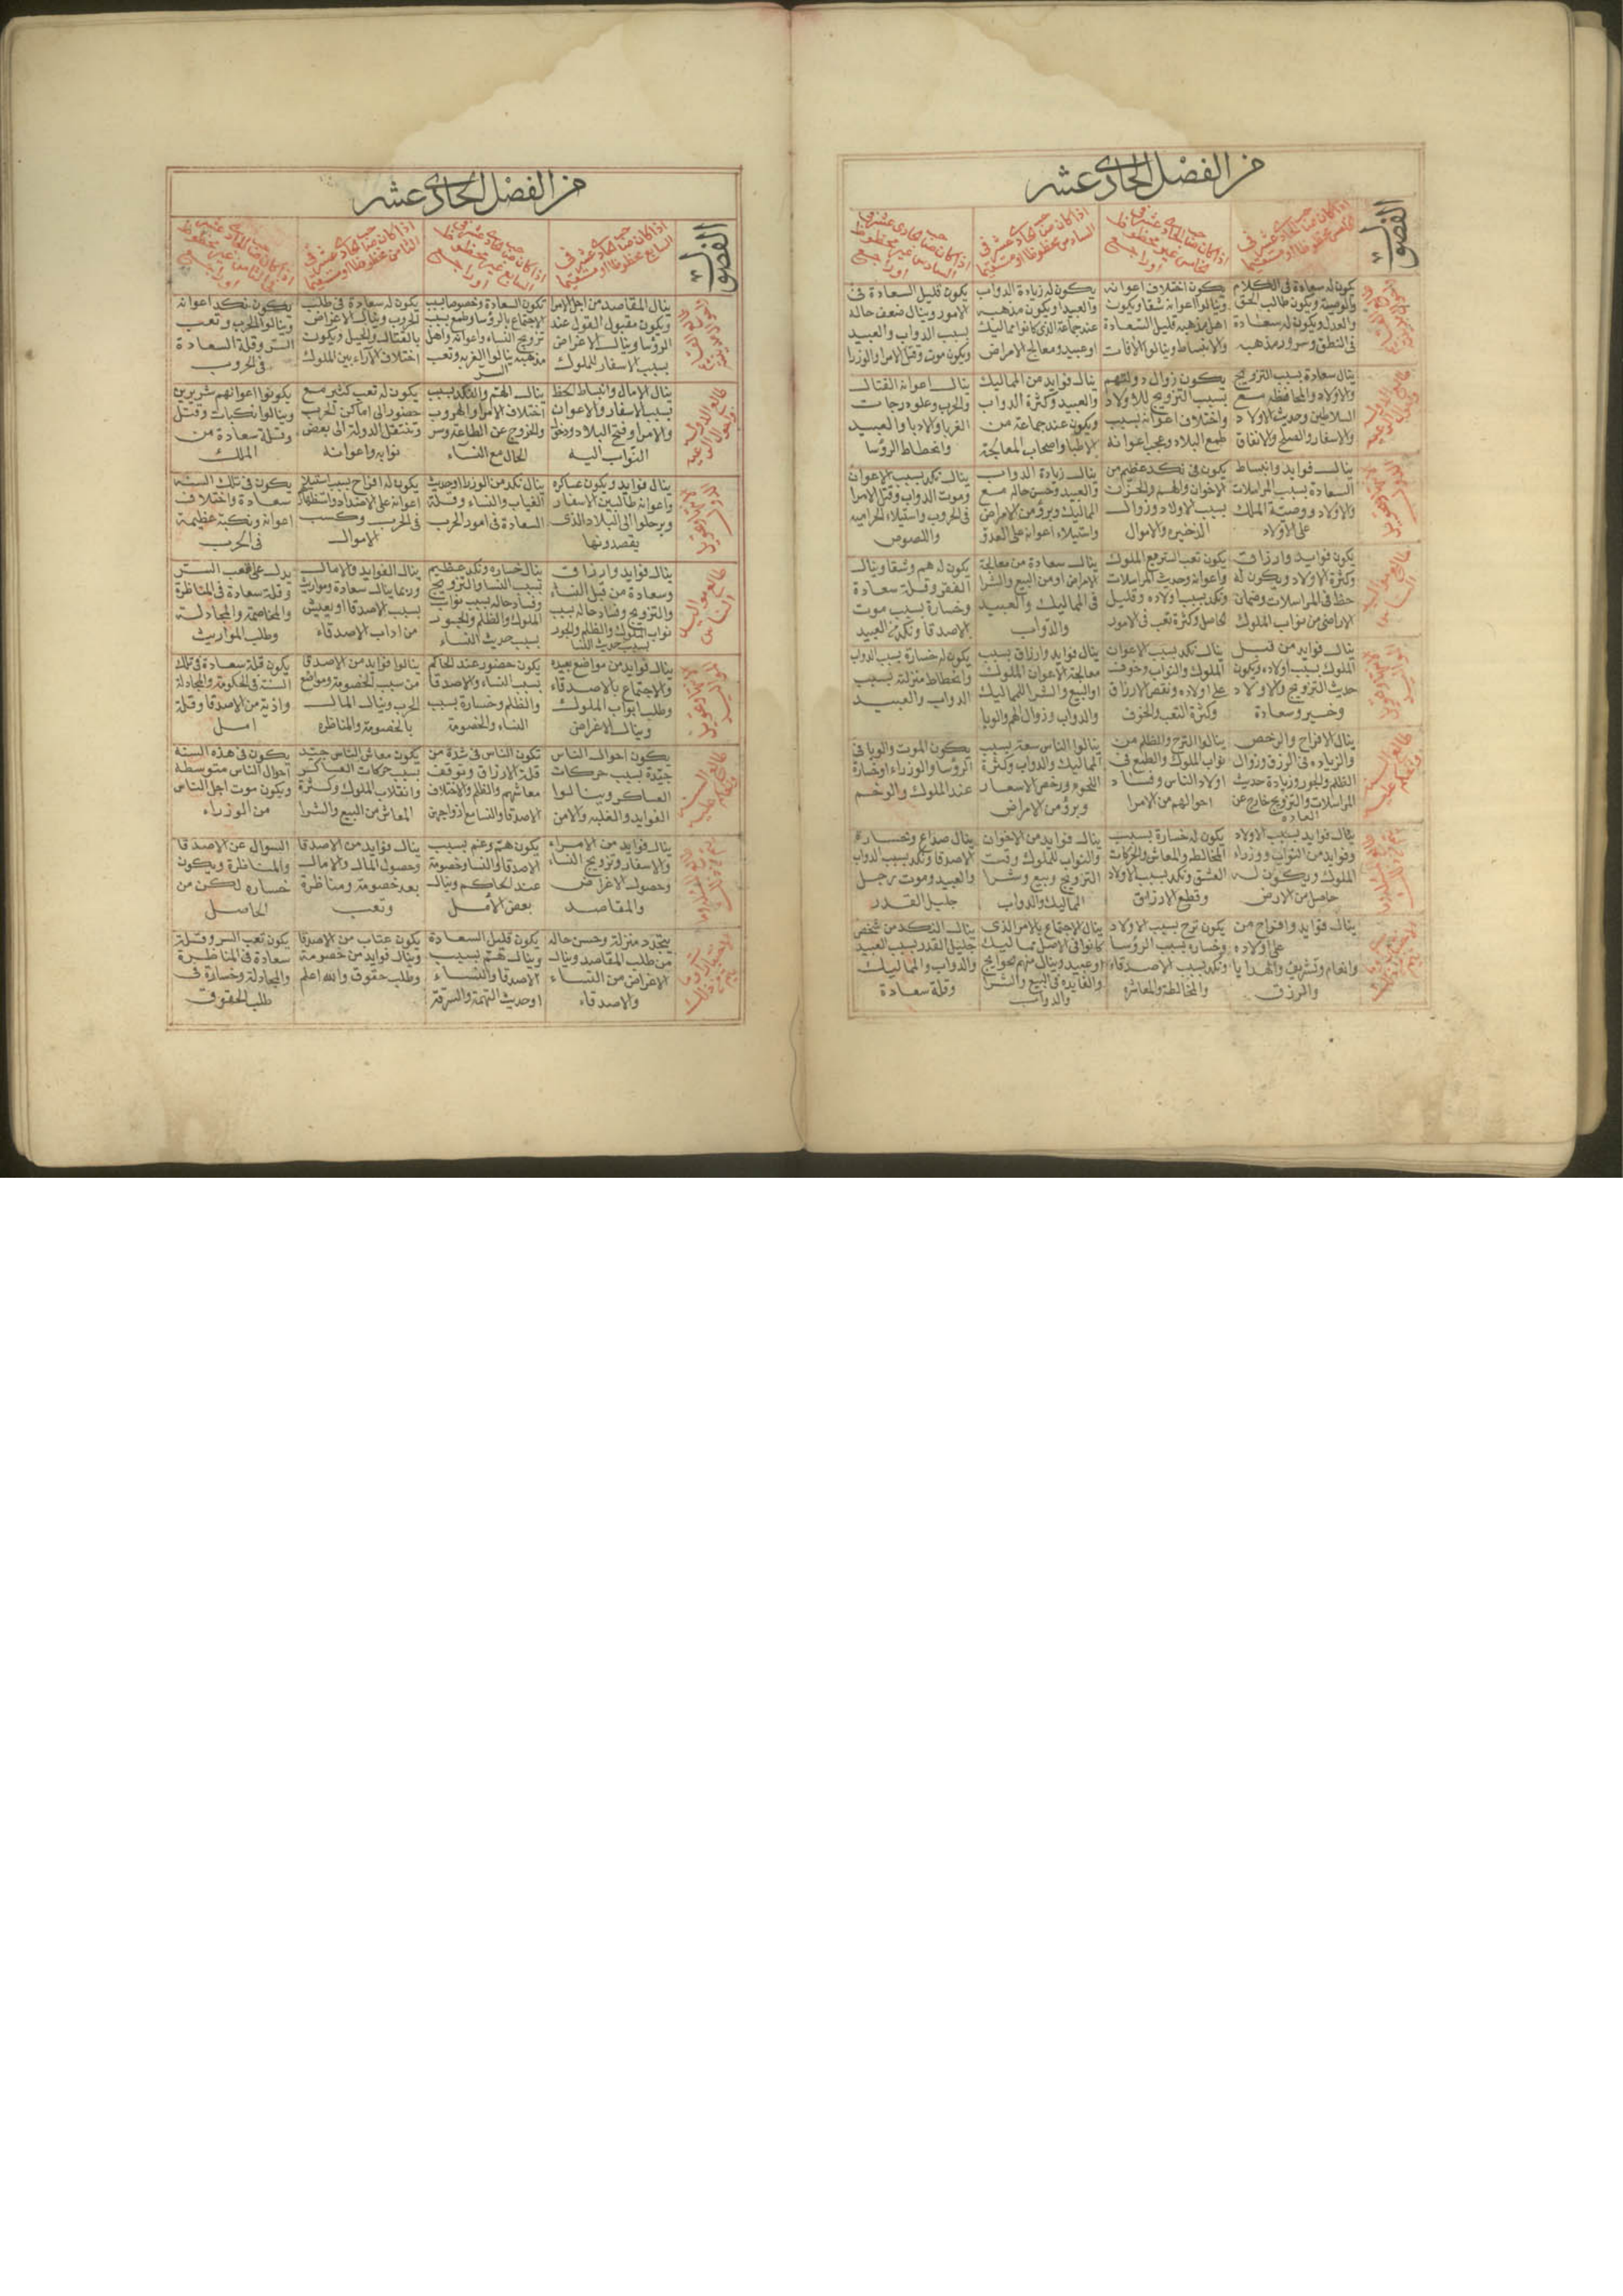 من الفصل الحادى عشر
الفصول
اذا كان صاحب الحادى عشر فى
الخامس محظوظا او مستقيما
اذا كان صاحب الحادى عشر فى
الخامس غير محظوظ
او راجع
اذا كان صاحب الحادى عشر فى
السادس محظوظا او مستقيما
اذا كان صاحب الحادى عشر فى
السادس غير محظوظ
او راجع
يكون له سعادة فى الكلام
والوصية ويكون طالب الحق
والعدل ويكون له سعادة
فى النطق وسرور مذهبه
يكون اختلاف اعوانه
وينالوا اعوانه شقا ويكون
اهل مذهبه قليل السعادة
والانبساط وينالوا الآفات
يكون له زيادة الدواب
والعبيد او يكون مذهبه
عند جماعة الذى كانوا مماليك
او عبيد ومعالج الامراض
يكون قليل السعادة فى
الامور وينال ضعف حاله
بسبب الدواب والعبيد
ويكون موت وقتل الامرا والوزرا
طالع الدولة
ينال سعادة بسبب التزويج
والاولاد والمحافظه مع
السلاطين وحديث الاولاد
والاسفار والصلح والانفاق
يكون زوال دولتهم
بسبب التزويج للاولاد
واختلاف اعوانه بسبب
طمع البلاد وعجب اعوانه
ينال فوايد من المماليك
والعبيد وكثرة الدواب
ويكون عند جماعة من
الاطبا واصحاب المعالجة
ينال اعوانه القتال
والحرب وعلو درجات
الغربا والادبا والعبيد
وانحطاط الرؤسا
ينال فوايد وانبساط
السعادة بسبب المراسلات
والاولاد ووصية الملك
على الاولاد
يكون فى نكد عظيم من
الاخوان والهم والحزن
بسبب الاولاد وزوال
الذخيره والاموال
ينال زيادة الدواب
والعبيد وحسن حاله مع
المماليك وبرؤ من الامراض
واستيلاء اعوانه على العدو
ينال نكد بسبب الاعوان
وموت الدواب وقتل الامرا
فى الحروب واستيلاء الحراميه
واللصوص
طالع مواليد
الناس
يكون فوايد وارزاق
وكثرة الاولاد ويكون له
حظ فى المراسلات وضمان
الاراضى من نواب الملوك
يكون تعب السر مع الملوك
واعوانه وحديث المراسلات
ونكد بسبب اولاده وقليل
الحاصل وكثرة تعب فى الامور
ينال سعادة من معالجة
الامراض او من البيع والشرا
فى المماليك والعبيد
والدواب
يكون له هم وشقا وينال
الفقر وقلة سعادة
وخسارة بسبب موت
الاصدقا ونكد من العبيد
ينال فوايد من قبل
الملوك بسبب اولاده ويكون
حديث التزويج والاولاد
وخير وسعادة
ينال نكد بسبب الاعوان
الملوك والنواب وخوف
على اولاده ونقص الارزاق
وكثرة التعب والخوف
ينال فوايد وارزاق بسبب
معالجة الاعوان الملوك
او البيع والشرا المماليك
والدواب وزوال الهم والوبا
يكون له خسارة بسبب الدواب
وانحطاط منزلته بسبب
الدواب والعبيد
ينال الافراح والرخص
والزياده فى الرزق وزوال
الظلم والجور وزيادة حديث
المراسلات والتزويج خارج عن
العاده
ينالوا الترح والظلم من
نواب الملوك والطمع فى
اولاد الناس وفساد
احوالهم من الامرا
ينالوا الناس سعة بسبب
المماليك والدواب وكثرة
اللحوم ورخص الاسعار
وبرؤ من الامراض
يكون الموت والوبا فى
الرؤسا والوزراء او خسارة
عند الملوك والرخم
ينال فوايد بسبب الاولاد
وفوايد من النواب ووزراء
الملوك ويكون له
حاصل من الارض
يكون له خسارة بسبب
المخالطه والمعاش والحركات
العشق ونكد بسبب الاولاد
وقطع الارزاق
ينال فوايد من الاخوان
والنواب للملوك وقت
التزويج وبيع وشرا
المماليك والدواب
ينال صداع وخساره
الاصدقا ونكد بسبب الدواب
والعبيد وموت رجل
جليل القدر
ينال فوايد وافراح من
على اولاده
وانعام وتشريف والهدايا
والرزق
يكون ترح بسبب الاولاد
وخساره بسبب الرؤسا
ونكد بسبب الاصدقاء
والمخالطه والمعاشره
ينال الاجتماع بالامر الذى
كانوا فى الاصل مماليك
او عبيد وينال منهم حوايج
والفايده فى البيع والشرا
والدواب
ينال النكد من شخص
جليل القدر بسبب العبيد
والدواب والمماليك
وقلة سعادة
من الفصل الحادى عشر
الفصول
اذا كان صاحب الحادى عشر فى
السابع محظوظا او مستقيما
اذا كان صاحب الحادى عشر فى
السابع غير محظوظ
او راجع
اذا كان صاحب الحادى عشر فى
الثامن محظوظا او مستقيما
اذا كان صاحب الحادى عشر
فى الثامن غير محظوظ
او راجع
ينال المقاصد من اجل الامرا
ويكون مقبول القول عند
الرؤسا وينال الاغراض
بسبب الاسفار للملوك
تكون السعادة وخصوصا بسبب
الاجتماع بالرؤسا وطمع بسبب
تزويج النساء واعوانه واهل
مذهبه ينالوا الغربه وتعب
السر
يكون له سعادة فى طلب
الحروب وينال الاغراض
بالقتال والحيل ويكون
اختلاف الآراء بين الملوك
يكون نكد اعوانه
وينالوا الحرب وتعب
السر وقلة السعادة
فى الحروب
ينال الامال وانبساط الحظ
بسبب الاسفار والاعوان
والامرا وفتح البلاد ودخول
النواب اليه
ينال الهم والنكد بسبب
اختلاف الامرا والهروب
والخروج عن الطاعة وسر
الحال مع النساء
يكون له تعب كثير مع
حضور الى اماكن الحرب
وتنتقل الدولة الى بعض
نوابه واعوانه
يكونوا اعوانهم شريرين
وينالوا نكبات وقتل
وقلة سعادة من
الملك
ينال فوايد ويكون عساكره
واعوانه طالبين الاسفار
ويرحلوا الى البلاد الذى
يقصدونها
ينال نكد من الوزرا وحديث
الغياب والنساء وقلة
السعادة فى امور الحرب
يكون له افراح بسبب استيلاء
اعوانه على الاضداد واستظهار
فى الحرب وكسب
الاموال
يكون فى تلك السنة
سعادة واختلاف
اعوانه ونكبة عظيمة
فى الحرب
طالع مواليد
الناس
ينال فوايد وارزاق
وسعادة من قبل النساء
والتزويج وفساد حاله بسبب
نواب الملوك والظلم والجور
بسبب حديث النسا
ينال خساره ونكد عظيم
بسبب النسا والتزويج
وفساد حاله بسبب نواب
الملوك والظلم والجور
بسبب حديث النساء
ينال الفوايد والامال
وربما ينال سعادة ومواريث
بسبب الاصدقا او يعيش
من اداب الاصدقاء
يدل على تعب السر
وقلة سعادة فى المناظرة
والمخاصمة والمجادلة
وطلب المواريث
ينال فوايد من مواضع بعيده
والاجتماع بالاصدقاء
وطلب ابواب الملوك
وينال الاغراض
يكون حضور عند الحاكم
بسبب النساء والاصدقا
والظلم وخسارة بسبب
النساء والخصومة
ينالوا فوايد من الاصدقا
من سبب الخصومة ومواضع
الحرب وينال المال
بالخصومة والمناظره
يكون قلة سعادة فى تلك
السنة فى الحكومة والمجادلة
واذية من الاصدقا وقلة
امل
يكون احوال الناس
جيدة بسبب حركات
العساكر وينالوا
الفوايد والغلبه والامن
تكون الناس فى شدة من
قلة الارزاق وتوقف
معاشهم والظلم والاختلاف
الاصدقا والنسا مع ازواجهن
يكون معاش الناس جيد
بسبب حركات العساكر
وانقلاب الملوك وكثرة
المعاش من البيع والشرا
يكون فى هذه السنه
احوال الناس متوسطه
ويكون موت اجل الناس
من الوزراء
ينال فوايد من الامراء
والاسفار وتزويج النساء
وحصول الاغراض
والمقاصد
يكون هم وغم بسبب
الاصدقا والنسا وخصومة
عند الحاكم وينال
بعض الامل
ينال فوايد من الاصدقا
وحصول المال والامال
بعد خصومة ومناظرة
وتعب
السوال عن الاصدقا
والمناظرة ويكون
خساره لكن من
الحاصل
يتجدد منزلة وحسن حاله
من طلب المقاصد وينال
الاغراض من النساء
والاصدقاء
يكون قليل السعادة
وينال هم بسبب
الاصدقا والنساء
او حديث التهمة والسرقة
يكون عتاب من الاصدقا
وينال فوايد من خصومة
وطلب حقوق والله اعلم
يكون تعب السر وقلة
سعادة فى المناظرة
والمجادلة وخسارة فى
طلب الحقوق